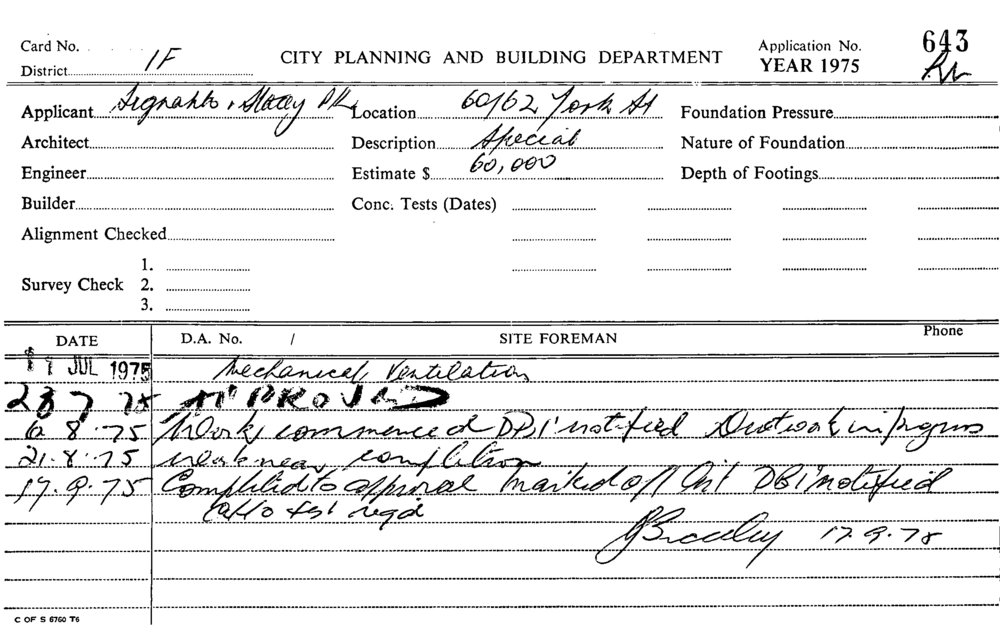 Card No. CITY PLANNING AND BUILDING DEPARTMENT Application No. 643
District 1F YEAR 1975
Applicant Stacey Location 60/62 York St Foundation Pressure
Architect Description Special Nature of Foundation
Engineer Estimate $ 60,000 Depth of Footings
Builder Conc. Tests (Dates)
Alignment Checked
1.
Survey Check 2.
3.
DATE D.A. No. / SITE FOREMAN Phone
11 JUL 1975 Mechanical Ventilation
28 7 75 APPROVED
6.8.75 Work commenced DBI notified Ductwork in progress
21.8.75 work near completion
17.9.75 Completed to approval marked off DBI notified
test reqd
17.9.75
C OF S 6760 T6